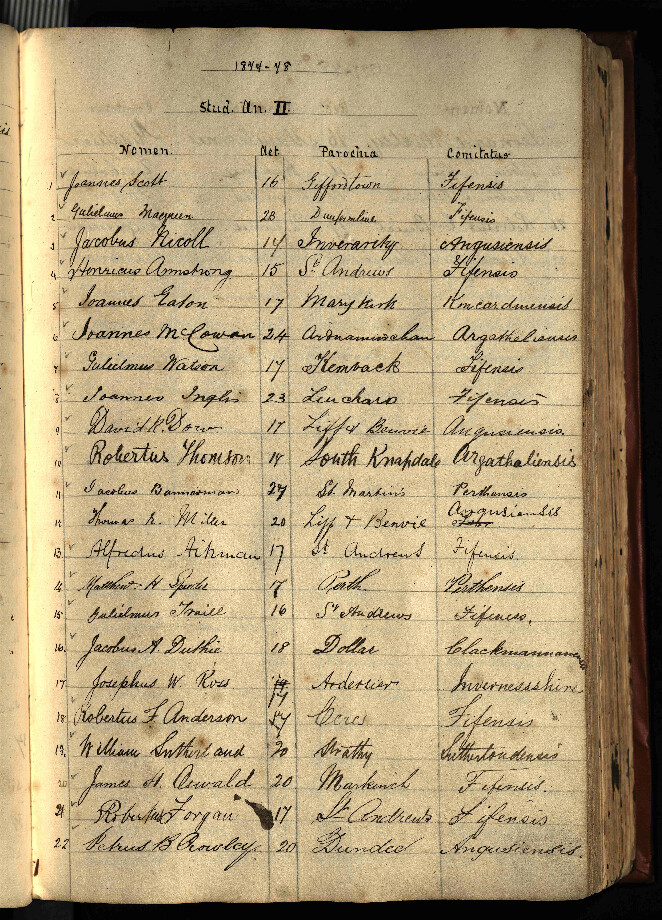 1877-78
Stud. An. II
Nomen. Aet. Parochia Comitatus
1 Joannes Scott 16 Giffordtown Fifensis
2 Gulielmus Macqueen 23 Dunfermline Fifensis
3 Jacobus Nicoll 14 Inverarity Angusiensis
4 Henricus Armstrong 15 St Andrews Fifensis
5 Joannes Eaton 17 Mary Kirk Kincardinensis
6 Joannes McCowan 24 Ardnamurchan Argatheliensis
7 Gulielmus Watson 17 Kemback Fifensis
8 Joannes Inglis 23 Leuchars Fifensis
9 David K. Dow 17 Liff & Benvie Angusiensis
10 Robertus Thomson 19 South Knapdale Argathaliensis
11 Jacobus Bannerman 27 St. Martin's Perthensis
12 Thomas R. Miller 20 Liff & Benvie Angusiensis
13 Alfredus Aikman 17 St Andrews Fifensis.
14 Matthew H 17 Perth. Perthensis
15 Gulielmus Traill 16 St Andrews Fifensis.
16. Jacobus A. Duthie 18 Dollar Clackmannanensis
17 Josephus W. Ross 17 Ardersier Invernessshire
18 Robertus F. Anderson 17 Ceres Fifensis
19. William Sutherland 20 Strathy Sutherlandensis
20 James H. Oswald 20 Markinch Fifensis.
21 Robertus Forgan 17 St Andrews Fifensis
22 Petrus B Crowley 20 Dundee Angusiensis.